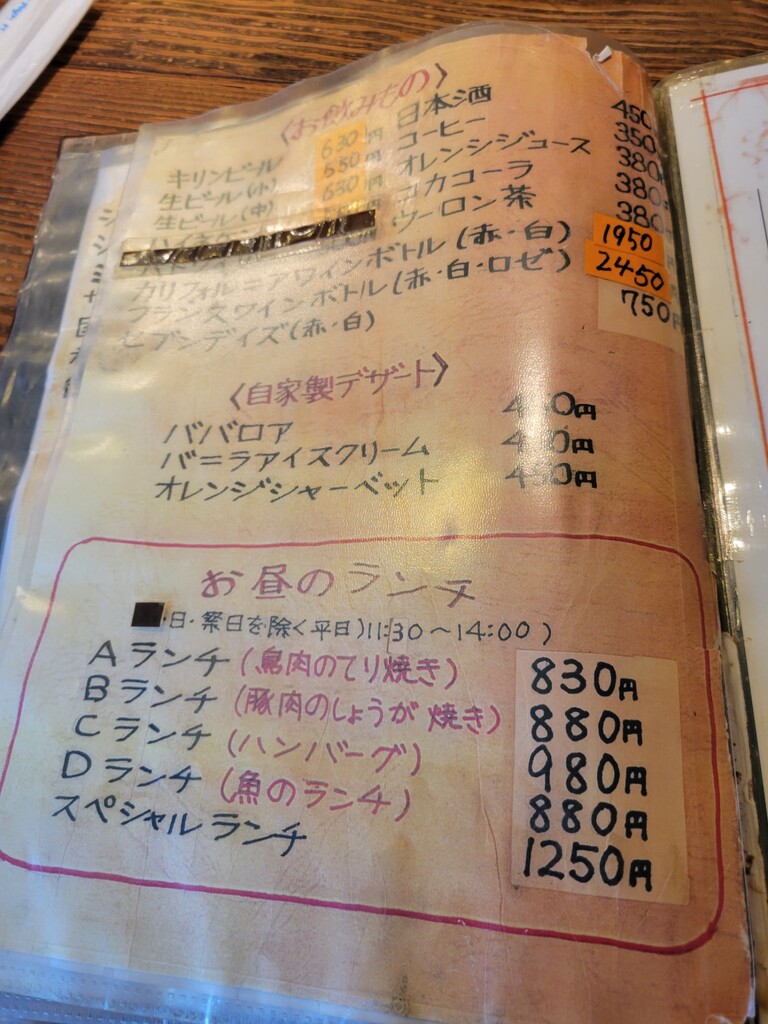 〈お飲みもの〉
キリンビール 630円
生ビール(小) 550円
生ビール(中) 650円
日本酒 450
コーヒー 350
オレンジジュース 380
コカコーラ 380
ウーロン茶 380
カリフォルニアワインボトル(赤・白) 1950
フランスワインボトル(赤・白・ロゼ) 2450
セブンデイズ(赤・白) 750円
〈自家製デザート〉
ババロア
バニラアイスクリーム
オレンジシャーベット
お昼のランチ
日・祭日を除く平日)11:30〜14:00)
Aランチ(鳥肉のてり焼き) 830円
Bランチ(豚肉のしょうが焼き) 880円
Cランチ(ハンバーグ) 980円
Dランチ(魚のランチ) 880円
スペシャルランチ 1250円